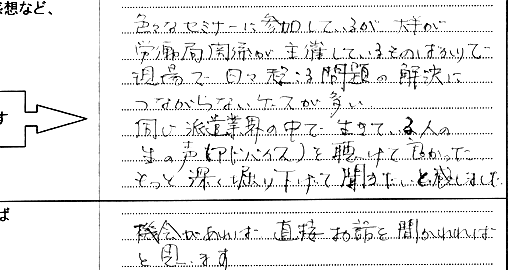 想など、
色々なセミナーに参加しているが 大半が
労働局関係が主催しているものばかりで
現場で日々起こる問題の解決に
つながらないケースが多い
す
同じ派遣業界の中で生きている人の
生の声(アドバイス)を聴けて良かった
もっと深く掘り下げて聞きたいと感じました
ば
機会があれば 直接お話を聞かれれば
と思います